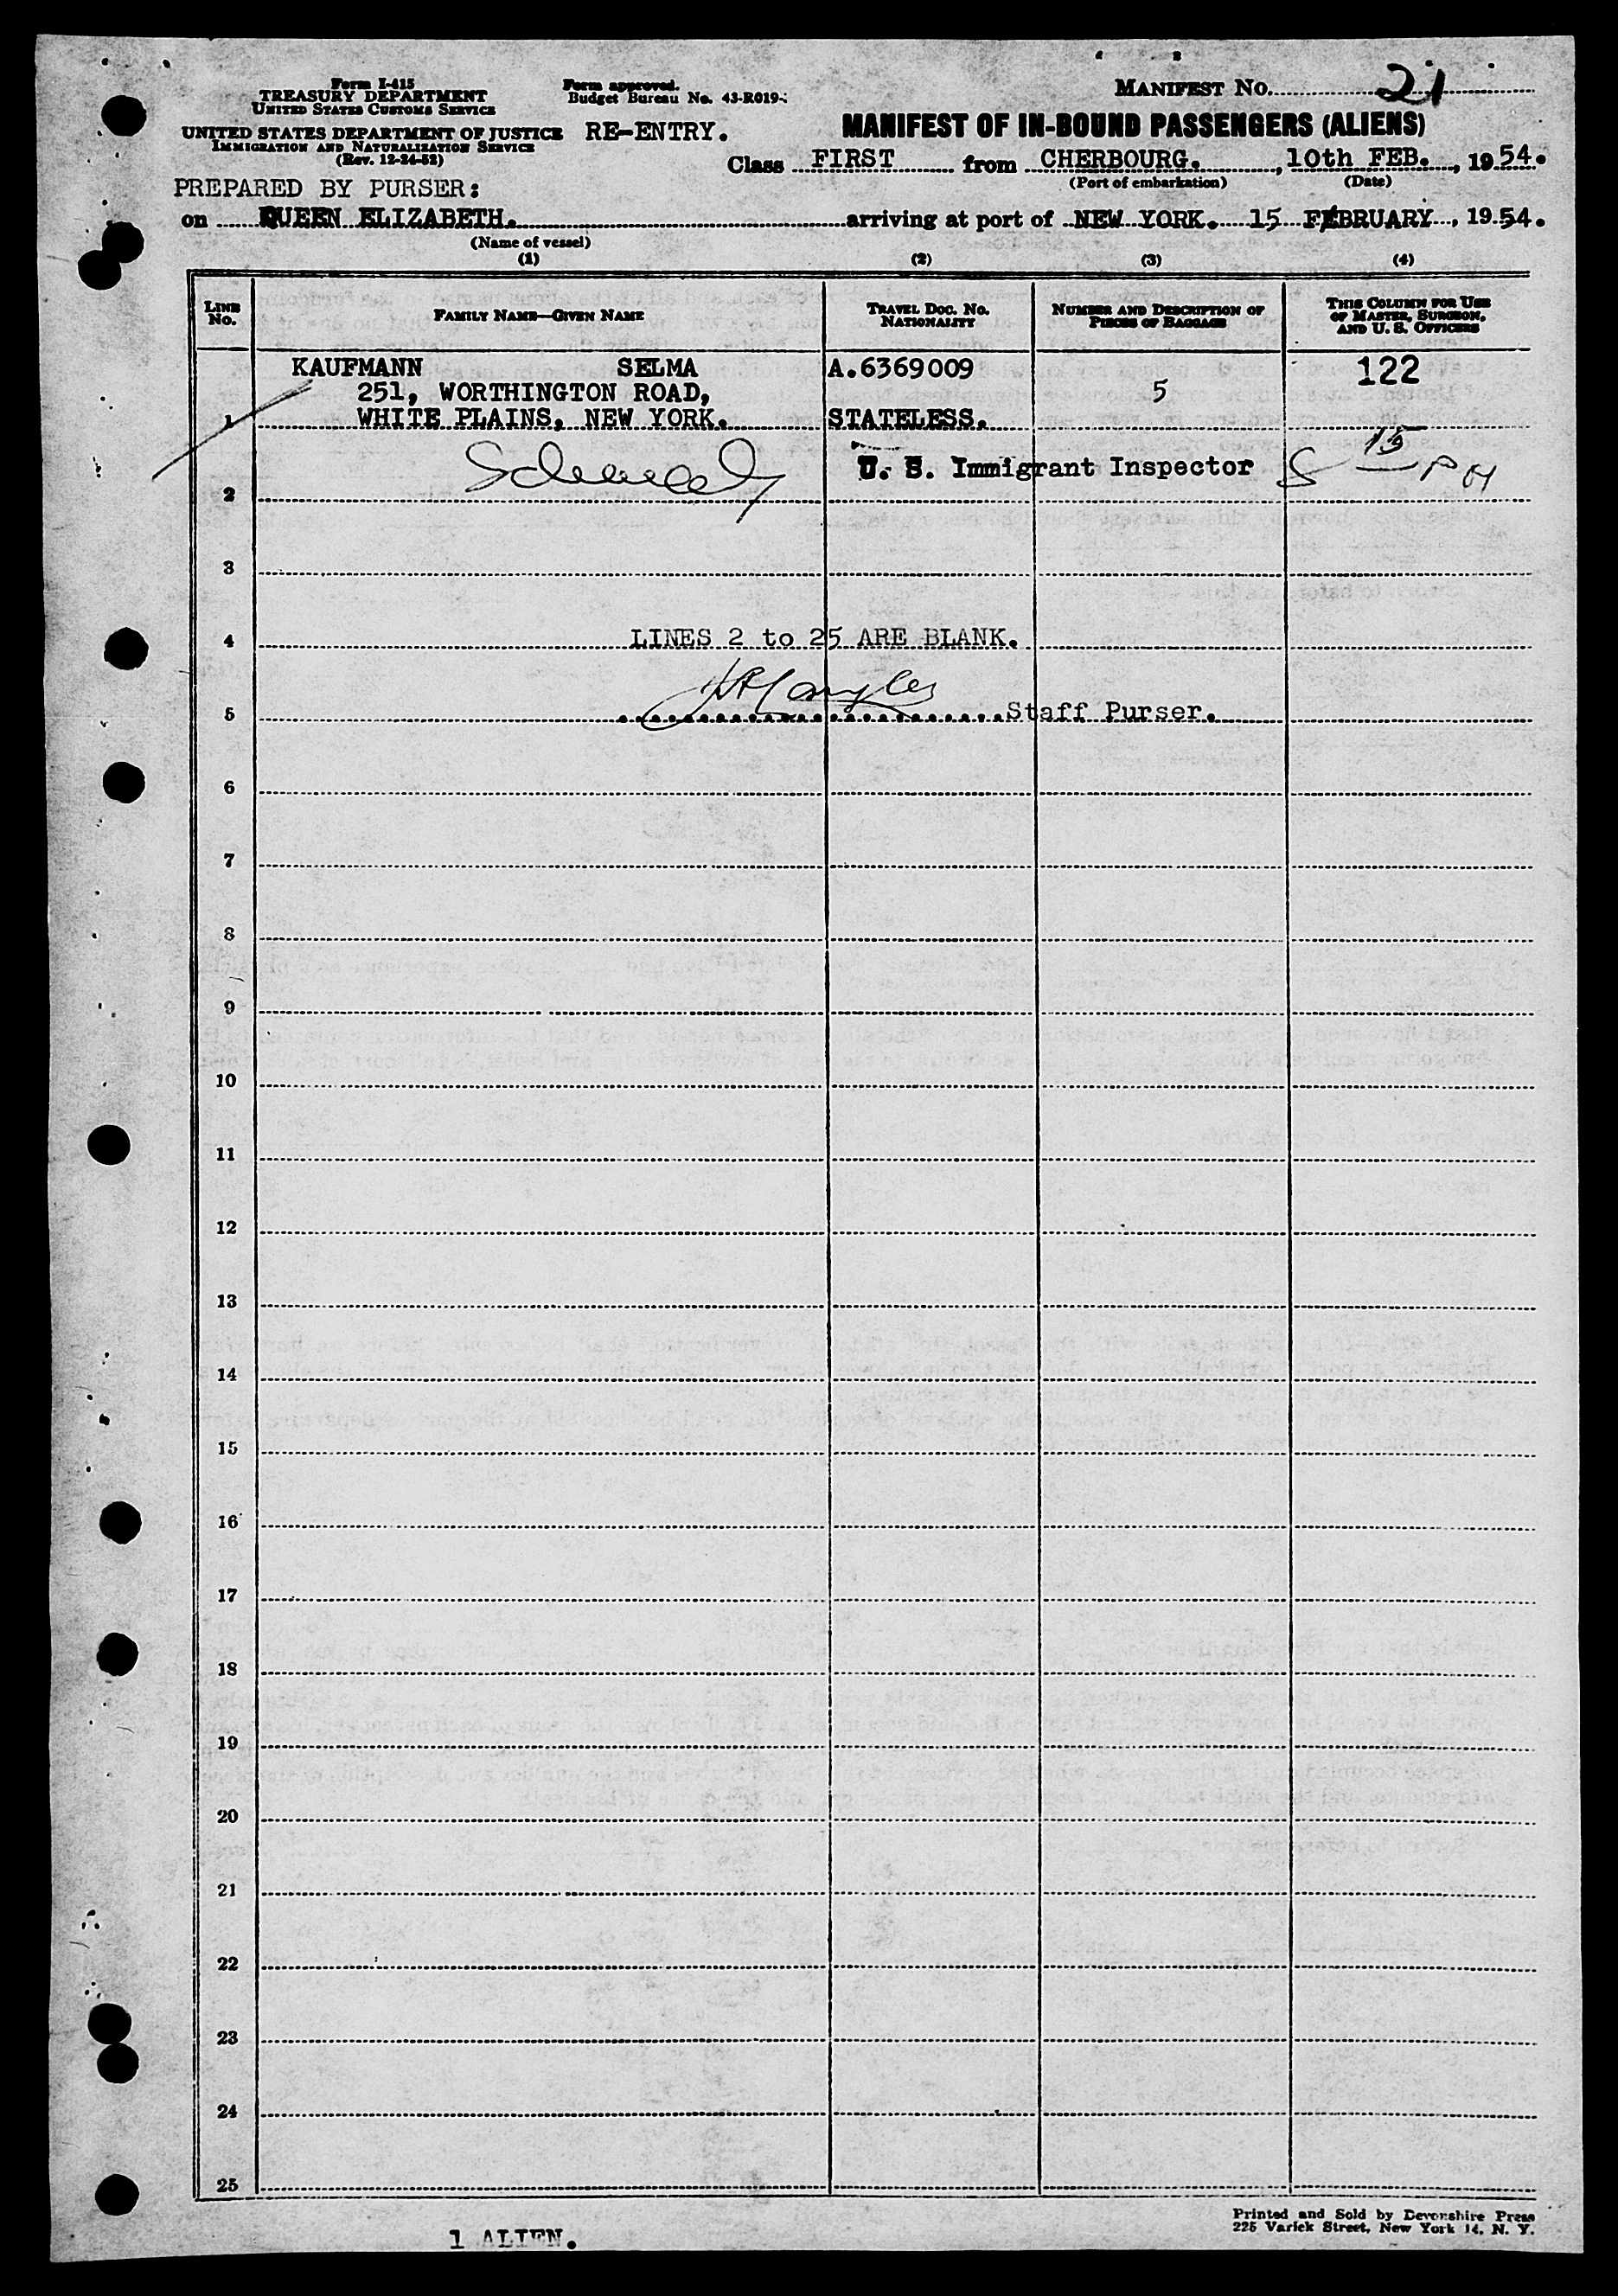 Form I-415
TREASURY DEPARTMENT
UNITED STATES CUSTOMS SERVICE
UNITED STATES DEPARTMENT OF JUSTICE
IMMIGRATION AND NATURALIZATION SERVICE
(Rev. 12-24-52)
Form approved.
Budget Bureau No. 43-R019-
RE-ENTRY.
MANIFEST NO. 21
MANIFEST OF IN-BOUND PASSENGERS (ALIENS)
Class FIRST from CHERBOURG., 10th FEB., 1954.
(Port of embarkation) (Date)
PREPARED BY PURSER:
on QUEEN ELIZABETH. arriving at port of NEW YORK. 15 FEBRUARY, 1954.
(Name of vessel)
(1) (2) (3) (4)
LINE No. FAMILY NAME—GIVEN NAME TRAVEL DOC. NO. NATIONALITY NUMBER AND DESCRIPTION OF PIECES OF BAGGAGE THIS COLUMN FOR USE OF MASTER, SURGEON, AND U. S. OFFICERS
KAUFMANN SELMA A.6369009 122
251, WORTHINGTON ROAD, 5
1 WHITE PLAINS, NEW YORK. STATELESS.
U. S. Immigrant Inspector 15
2
3
4 LINES 2 to 25 ARE BLANK.
5 Staff Purser.
6
7
8
9
10
11
12
13
14
15
16
17
18
19
20
21
22
23
24
25
1 ALIEN.
Printed and Sold by Devonshire Press
225 Varick Street, New York 14, N. Y.